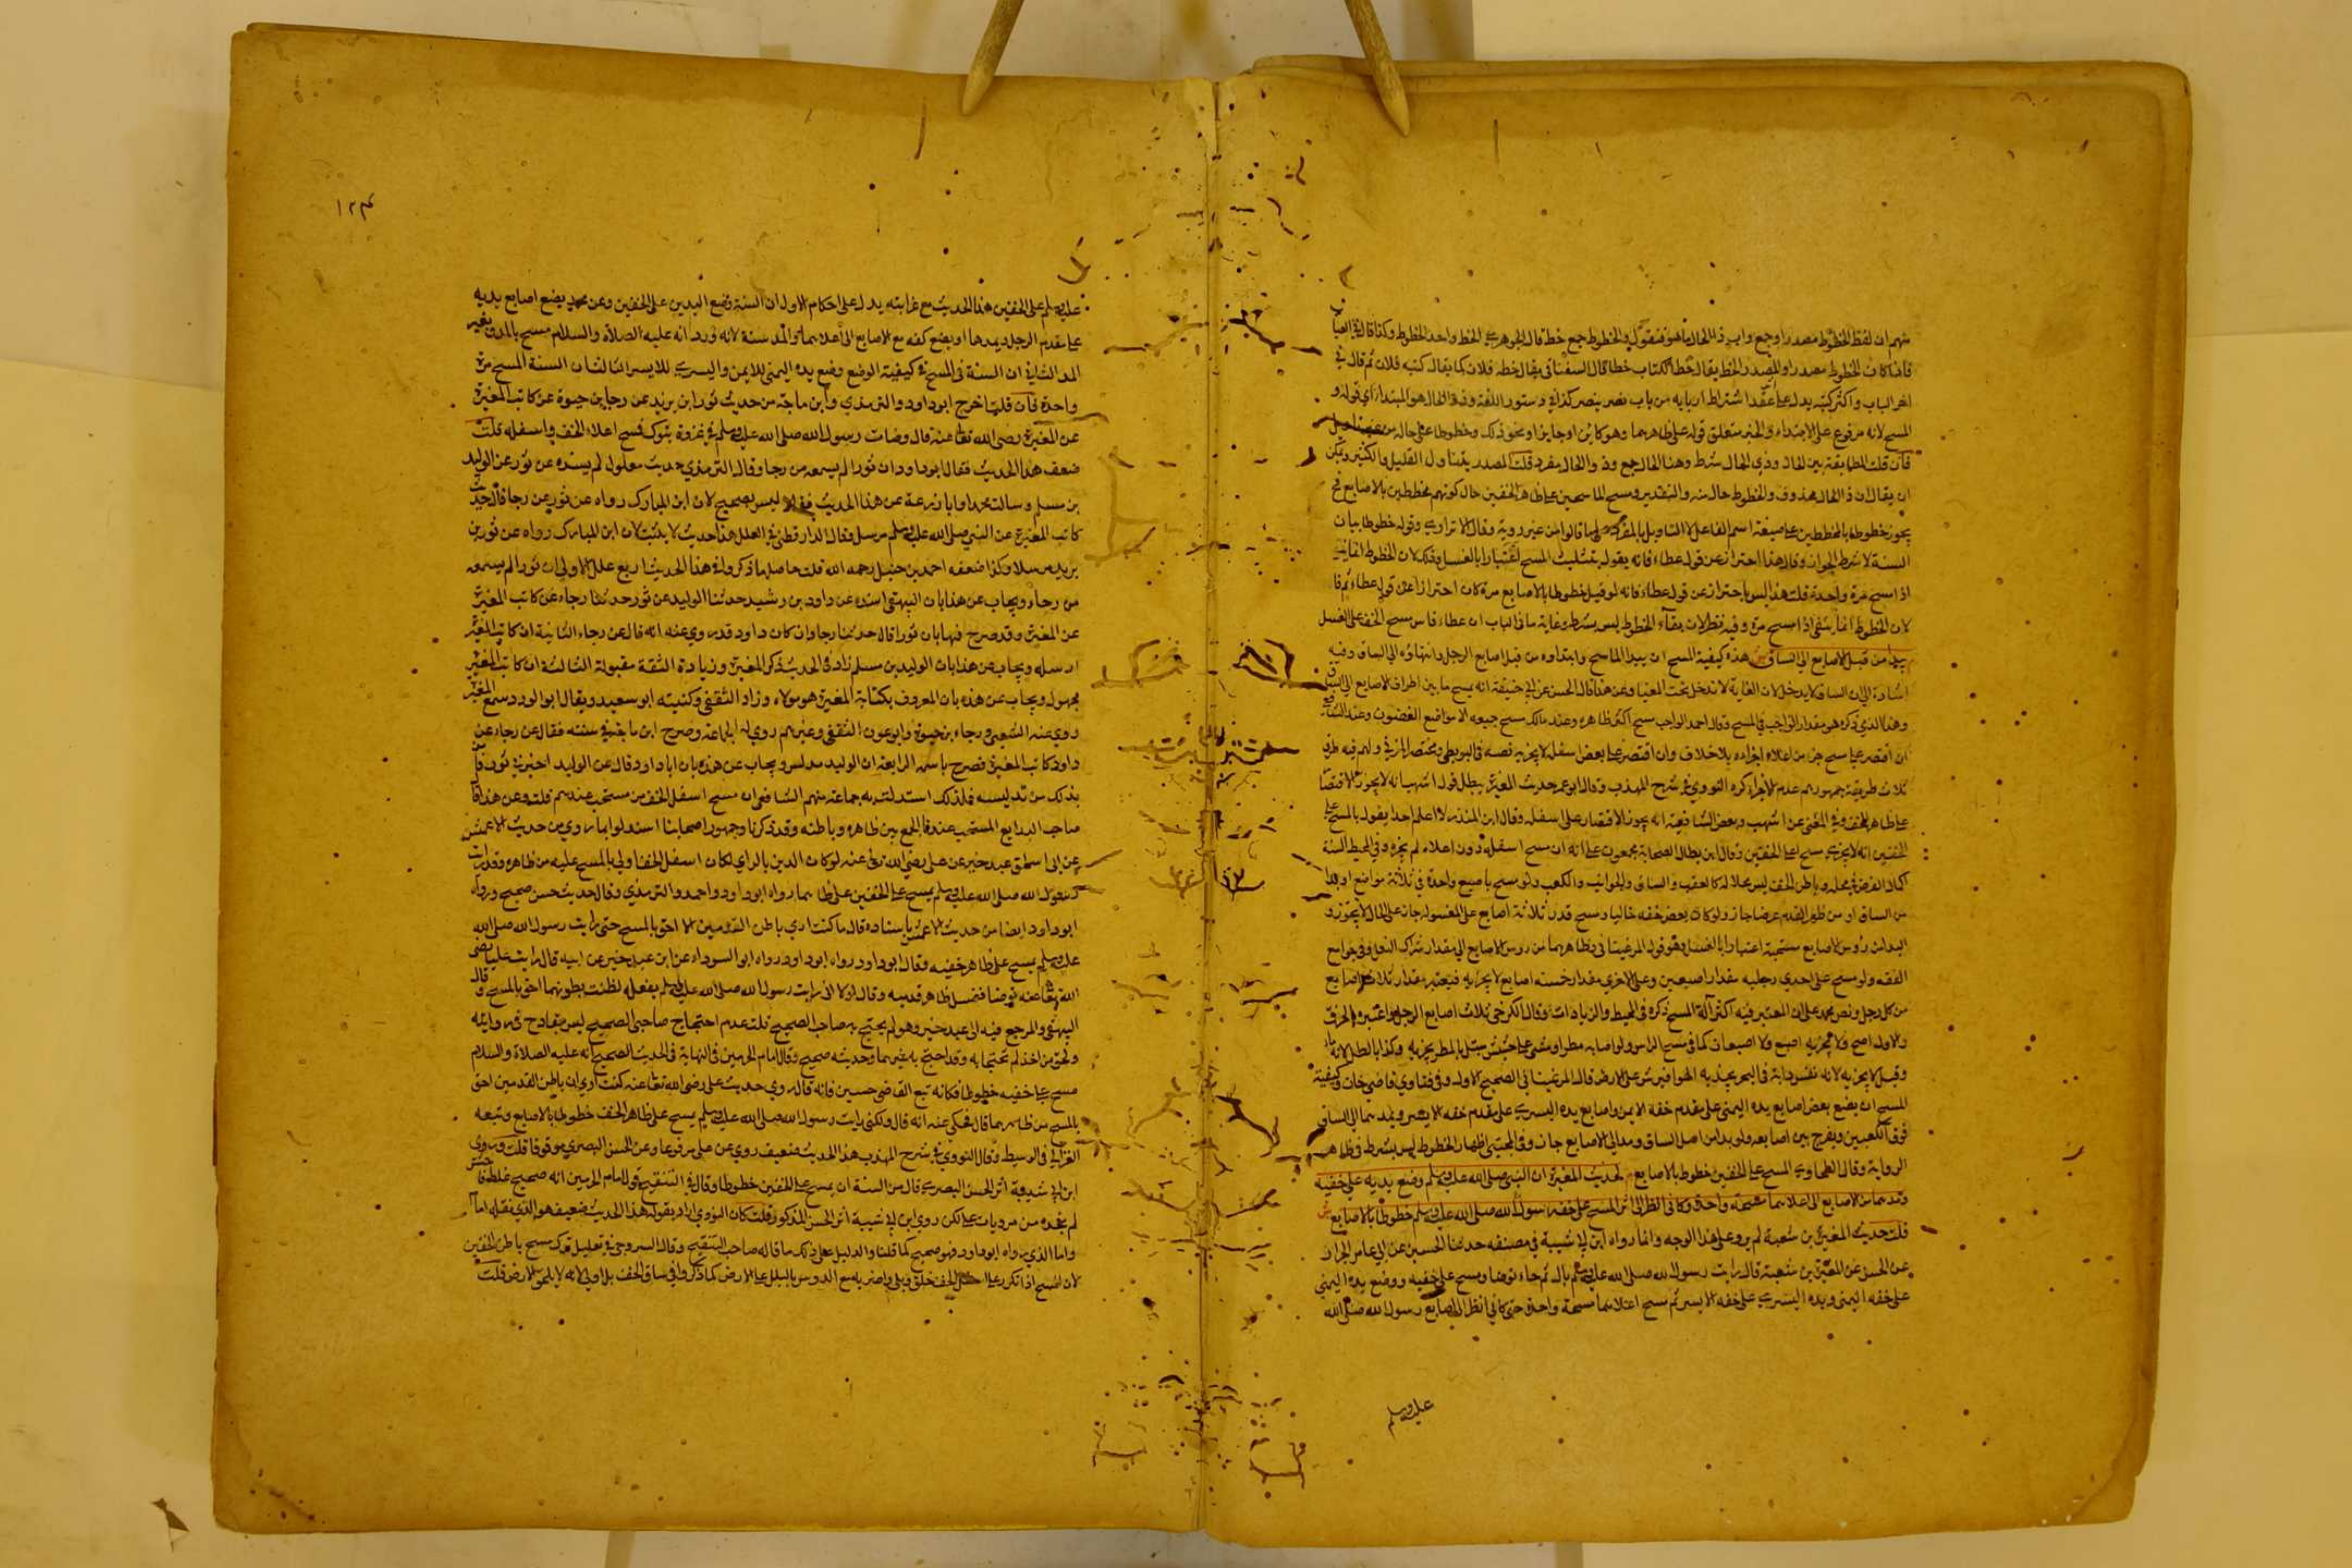 منهم ان لفظ الخطوط مصدر او جمع واين ذا الحال ما هو فنقول والخطوط جمع خط قال الجوهري الخط واحد الخطوط وكذا قال في العباب
فاذا كان الخطوط مصدرا والمصدر الخط يقال خط الكتاب خطا قال السغناقي يقال خطه فلان كما يقال كتبه فلان ثم قال في
المسح لانه مرفوع على الابتداء والخبر متعلق قوله على ظاهرهما وهو كائن او جاين او نحو ذلك وخطوطا على حاله من
فان قلت المطابقة بين الحال وذي الحال شرط وهنا الحال جمع وذو والحال مفرد قلت المصدر يتناول القليل والكثير ويمكن
ان يقال ان ذا الحال محذوف والخطوط حال منه والتقدير ومسح الماسحين على ظاهر الخفين حال كونهم مخططين بالاصابع فح
السنة لا شرط الجواز وقال هذا احتراز عن قول عطاء فانه يقول بتثليث المسح اعتبارا بالغسل وذلك لان الخطوط انما تبقى
اذا مسح مرة واحدة قلت هذا ليس باحتراز عن قول عطاء فانه لو قيل خطوطا بالاصابع مرة كان احترازا عن قول عطاء ثم قال
لان الخطوط انما تبقى اذا مسح مرة وفيه نظر لان بقاء الخطوط ليس بشرط وغاية ما في الباب ان عطاء قاس مسح الخف على الغسل
يبدا من قبل الاصابع الى الساق ش هذه كيفية المسح ان يبدا الماسح وابتداوه من قبل اصابع الرجل وانتهاؤه الى الساق وفيه
اشارة الى ان الساق لا يدخل لان الغاية لا تدخل تحت المغيا وعن هذا قال الحسن عن ابي حنيفة انه يمسح ما بين اطراف الاصابع الى الساق
وهذا الذي ذكره هو مقدار الواجب في المسح وقال احمد الواجب مسح اكثر ظاهره وعند مالك مسح جميعه الا مواضع الغضون وعند الشافعي
ان اقتصر على مسح جزء من اعلاه اجزاه بلا خلاف وان اقتصر على بعض اسفله لا يجزيه نصه في البويطي ومختصر المزني ولهم فيه طرق
ثلاث طريقة جمهورهم عدم الاجزاء ذكره النووي في شرح المهذب وقال ابو عمر حديث المغيرة يبطل قول اشهب انه لا يجوز الاقتصار
على ظاهر الخف وفي المغني عن اشهب وبعض الشافعية انه يجوز الاقتصار على اسفله وقال ابن المنذر لا اعلم احدا يقول بالمسح على
الخفين انه لا يجزي مسح اعلى الخفين وقال ابن بطال الصحابة مجمعون على انه ان مسح اسفله دون اعلاه لم يجزه وفي المحيط السنة
اكمال الفرض في محله وباطن الخف ليس محلا له كالعقب والساق والجوانب والكعب ولو مسح باصبع واحدة في ثلاثة مواضع او بدا
من الساق او من ظهر القدم عرضا جاز ولو كان بعض خفه خاليا ومسح قدر ثلاثة اصابع على المغسول جاز على الخالي لا يجوز و
البداءة من رؤس الاصابع مستحبة اعتبارا بالغسل وهو قول المرغيناني وظاهرهما من رؤس الاصابع الى مقدار شراك النعل وفي جوامع
الفقه ولو مسح على احدى رجليه مقدار اصبعين وعلى الاخرى مقدار خمسة اصابع لا يجزيه فيعتبر مقدار ثلاث اصابع
من كل رجل ونص محمد على ان المعتبر فيه اكثر آلة المسح ذكره في المحيط والزيادات وقال الكرخي ثلاث اصابع الرجل واعتبره بالخرق
والاول اصح فلا يجزيه اصبع ولا اصبعان كما في مسح الراس ولو اصابه مطر او مشى على حشيش مبتل بالمطر يجزيه وكذا بالطل لانه ماء
وقيل لا يجزيه لانه نفس دابة في البحر يجذبه الهوا فيرش على الارض قال المرغيناني الصحيح الاول وفي فتاوي قاضي خان وكيفية
المسح ان يضع بعض اصابع يده اليمنى على مقدم خفه الايمن واصابع يده اليسرى على مقدم خفه الايسر ويمدهما الى الساق
فوق الكعبين ويفرج بين اصابعه ولو بدا من اصل الساق ومد الى الاصابع جاز وفي المجتبى اظهار الخطوط ليس بشرط في ظاهر
الرواية وقال الطحاوي المسح على الخفين خطوط بالاصابع لحديث المغيرة ان النبي صلى الله عليه وسلم وضع يديه على خفيه
ومدهما من الاصابع الى اعلاهما مسحة واحدة وكاني انظر الى اثر المسح على خف رسول الله صلى الله عليه وسلم خطوطا بالاصابع ش
قلت حديث المغيرة بن شعبة لم يرو على هذا الوجه وانما رواه ابن ابي شيبة في مصنفه حدثنا الحسين عن ابي عامر الخزاز
عن الحسن عن المغيرة بن شعبة قال رايت رسول الله صلى الله عليه وسلم بال ثم جاء توضا ومسح على خفيه ووضع يده اليمنى
على خفه اليمنى ويده اليسرى على خفه الايسر ثم مسح اعلاهما مسحة واحدة حتى كاني انظر الى اصابع رسول الله صلى الله
عليه وسلم
١٢٤
عليه وسلم على الخفين هذا الحديث مع غرابته يدل على احكام الاول ان السنة وضع اليدين على الخفين وعن محمد يضع اصابع يديه
على مقدم الرجل ويمدها او يضع كفه مع الاصابع الى اعلاهما والمد سنة لانه ورد انه عليه الصلاة والسلام مسح بالمد وبغير
المد الثاني ان السنة في المسح في كيفية الوضع وضع يده اليمنى للايمن واليسرى للايسر الثالث ان السنة المسح مرة
واحدة فان قلت اخرج ابو داود والترمذي وابن ماجة من حديث ثور ابن يزيد عن رجا بن حيوة عن كاتب المغيرة
عن المغيرة رضى الله تعالى عنه قال وضات رسول الله صلى الله عليه وسلم في غزوة تبوك فمسح اعلا الخف واسفله قلت
ضعف هذا الحديث فقال ابو داود ان ثورا لم يسمعه من رجا وقال الترمذي حديث معلول لم يسنده عن ثور غير الوليد
بن مسلم وسالت محمدا وابا زرعة عن هذا الحديث فقالا ليس بصحيح لان ابن المبارك رواه عن ثور عن رجا قال حدثت
كاتب المغيرة عن النبي صلى الله عليه وسلم مرسل وقال الدارقطني في العلل هذا حديث لا يثبت لان ابن المبارك رواه عن ثور بن
يزيد مرسلا وكذا ضعفه احمد بن حنبل رحمه الله قلت حاصل ما ذكروا في هذا الحديث اربع علل الاولى ان ثورا لم يسمعه
من رجاء ويجاب عن هذا بان البيهقي اسنده عن داود بن رشيد حدثنا الوليد عن ثور حدثنا رجاء عن كاتب المغيرة
عن المغيرة وقد صرح فيها بان ثورا قال حدثنا رجا وان كان داود قد روي عنه انه قال عن رجاء الثانية ان كاتب المغيرة
ارسله ويجاب عن هذا بان الوليد بن مسلم زاد في الحديث ذكر المغيرة وزيادة الثقة مقبولة الثالثة ان كاتب المغيرة
مجهول ويجاب عن هذه بان المعروف بكتابة المغيرة هو مولاه وراد الثقفي وكنيته ابو سعيد ويقال ابو الورد سمع المغيرة
روي عنه الشعبي ورجاء بن حيوة وابو عون الثقفي وغيرهم روي له الجماعة وصرح ابن ماجة في سننه فقال عن رجاء عن
وراد كاتب المغيرة فصرح باسمه الرابعة ان الوليد مدلس ويجاب عن هذه بان ابا داود قال عن الوليد اخبرني ثور فامن
بذلك من تدليسه فلذلك استدلت به جماعة منهم الشافعي ان مسح اسفل الخف من مستحب عندهم قلت وعن هذا قال
صاحب البدايع المستحب عندنا الجمع بين ظاهره وباطنه وقد ذكرنا وجمهور اصحابنا استدلوا بما روي من حديث الاعمش
عن ابي اسحق عن عبد خير عن علي رضي الله تعالى عنه لو كان الدين بالراي لكان اسفل الخف اولى بالمسح عليه من ظاهره وقد رايت
رسول الله صلى الله عليه وسلم يمسح على الخفين على ظاهرهما رواه ابو داود واحمد والترمذي وقال حديث حسن صحيح ورواه
ابو داود ايضا من حديث الاعمش باسناده قال ما كنت ارى باطن القدمين الا احق بالمسح حتى رايت رسول الله صلى الله
عليه وسلم يمسح على ظاهر خفيه وقال ابو داود رواه ابو السوداء عن ابن عبد خير عن ابيه قال رايت عليا رضى
الله تعالى عنه توضا فغسل ظاهر قدميه وقال لولا اني رايت رسول الله صلى الله عليه وسلم يفعله لظننت بطونهما احق بالمسح وقال
البيهقي والمرجع فيه الى عبد خير وهو لم يحتج به صاحب الصحيح قلت عدم احتجاج صاحبى الصحيح ليس بقادح في روايته
ولحق من اخذ لم يحتجا به وقد احتج به غيرهما وحديثه صحيح وقال امام الحرمين في النهاية في الحديث الصحيح انه عليه الصلاة والسلام
مسح على خفيه خطوطا فكانه تبع القاضي حسين فانه قال روي حديث علي رضى الله تعالى عنه كنت ارى ان باطن القدمين احق
بالمسح من ظاهرهما قال فحكى عنه انه قال ولكني رايت رسول الله صلى الله عليه وسلم يمسح على ظاهر الخف خطوطا بالاصابع وتبعه
الغزالي في الوسيط وقال النووي في شرح المهذب هذا الحديث ضعيف روي عن علي مرفوعا وعن الحسن البصري موقوفا قلت وروى
ابن ابي شيبة اثر الحسن البصري قال من السنة ان يمسح على الخفين خطوطا وقال في التنقيح قول امام الحرمين انه صحيح غلط فاحش
لم نجده من مرويات علي لكن روي ابن ابي شيبة اثر الحسن المذكور قلت كان النووي اراد بقوله هذا الحديث ضعيف هو الذي نقله امام
واما الذي رواه ابو داود فهو صحيح كما قلنا والدليل على ذلك ما قاله صاحب التنقيح وقال السروجي في تعليل ترك مسح باطن الخفين
لان المسح اذا تكرر على اسفل الخف خلق وبلي واضر به مع الدوس بالبلل على الارض كما ذكروا في ساق الخف بل اولى لانه لا يلحق الارض قلت